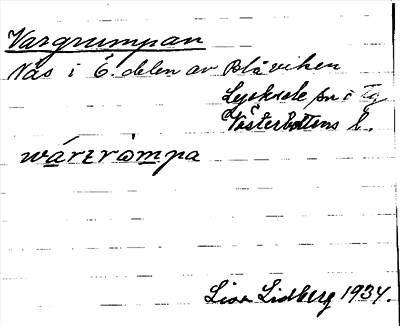 Vargrumpan
Näs i Ö. delen av Blåviken
Lycksele sn o Tg
Västerbottens l.
wárɩròmpa
Liva Lidberg 1934.